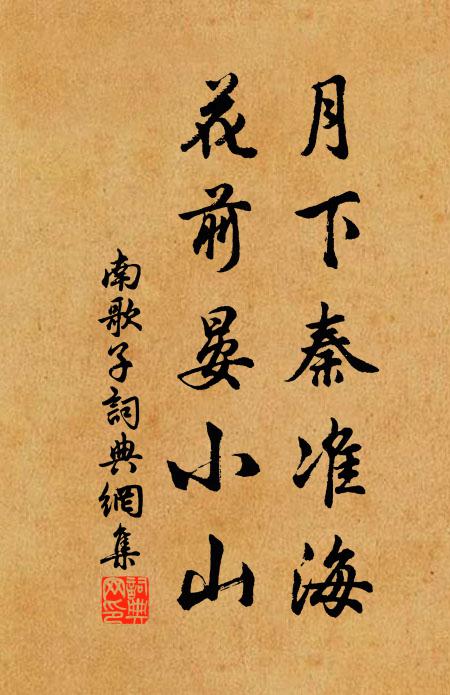 月下秦淮海
花前晏小山
南歌子詞典網集
詞典網印